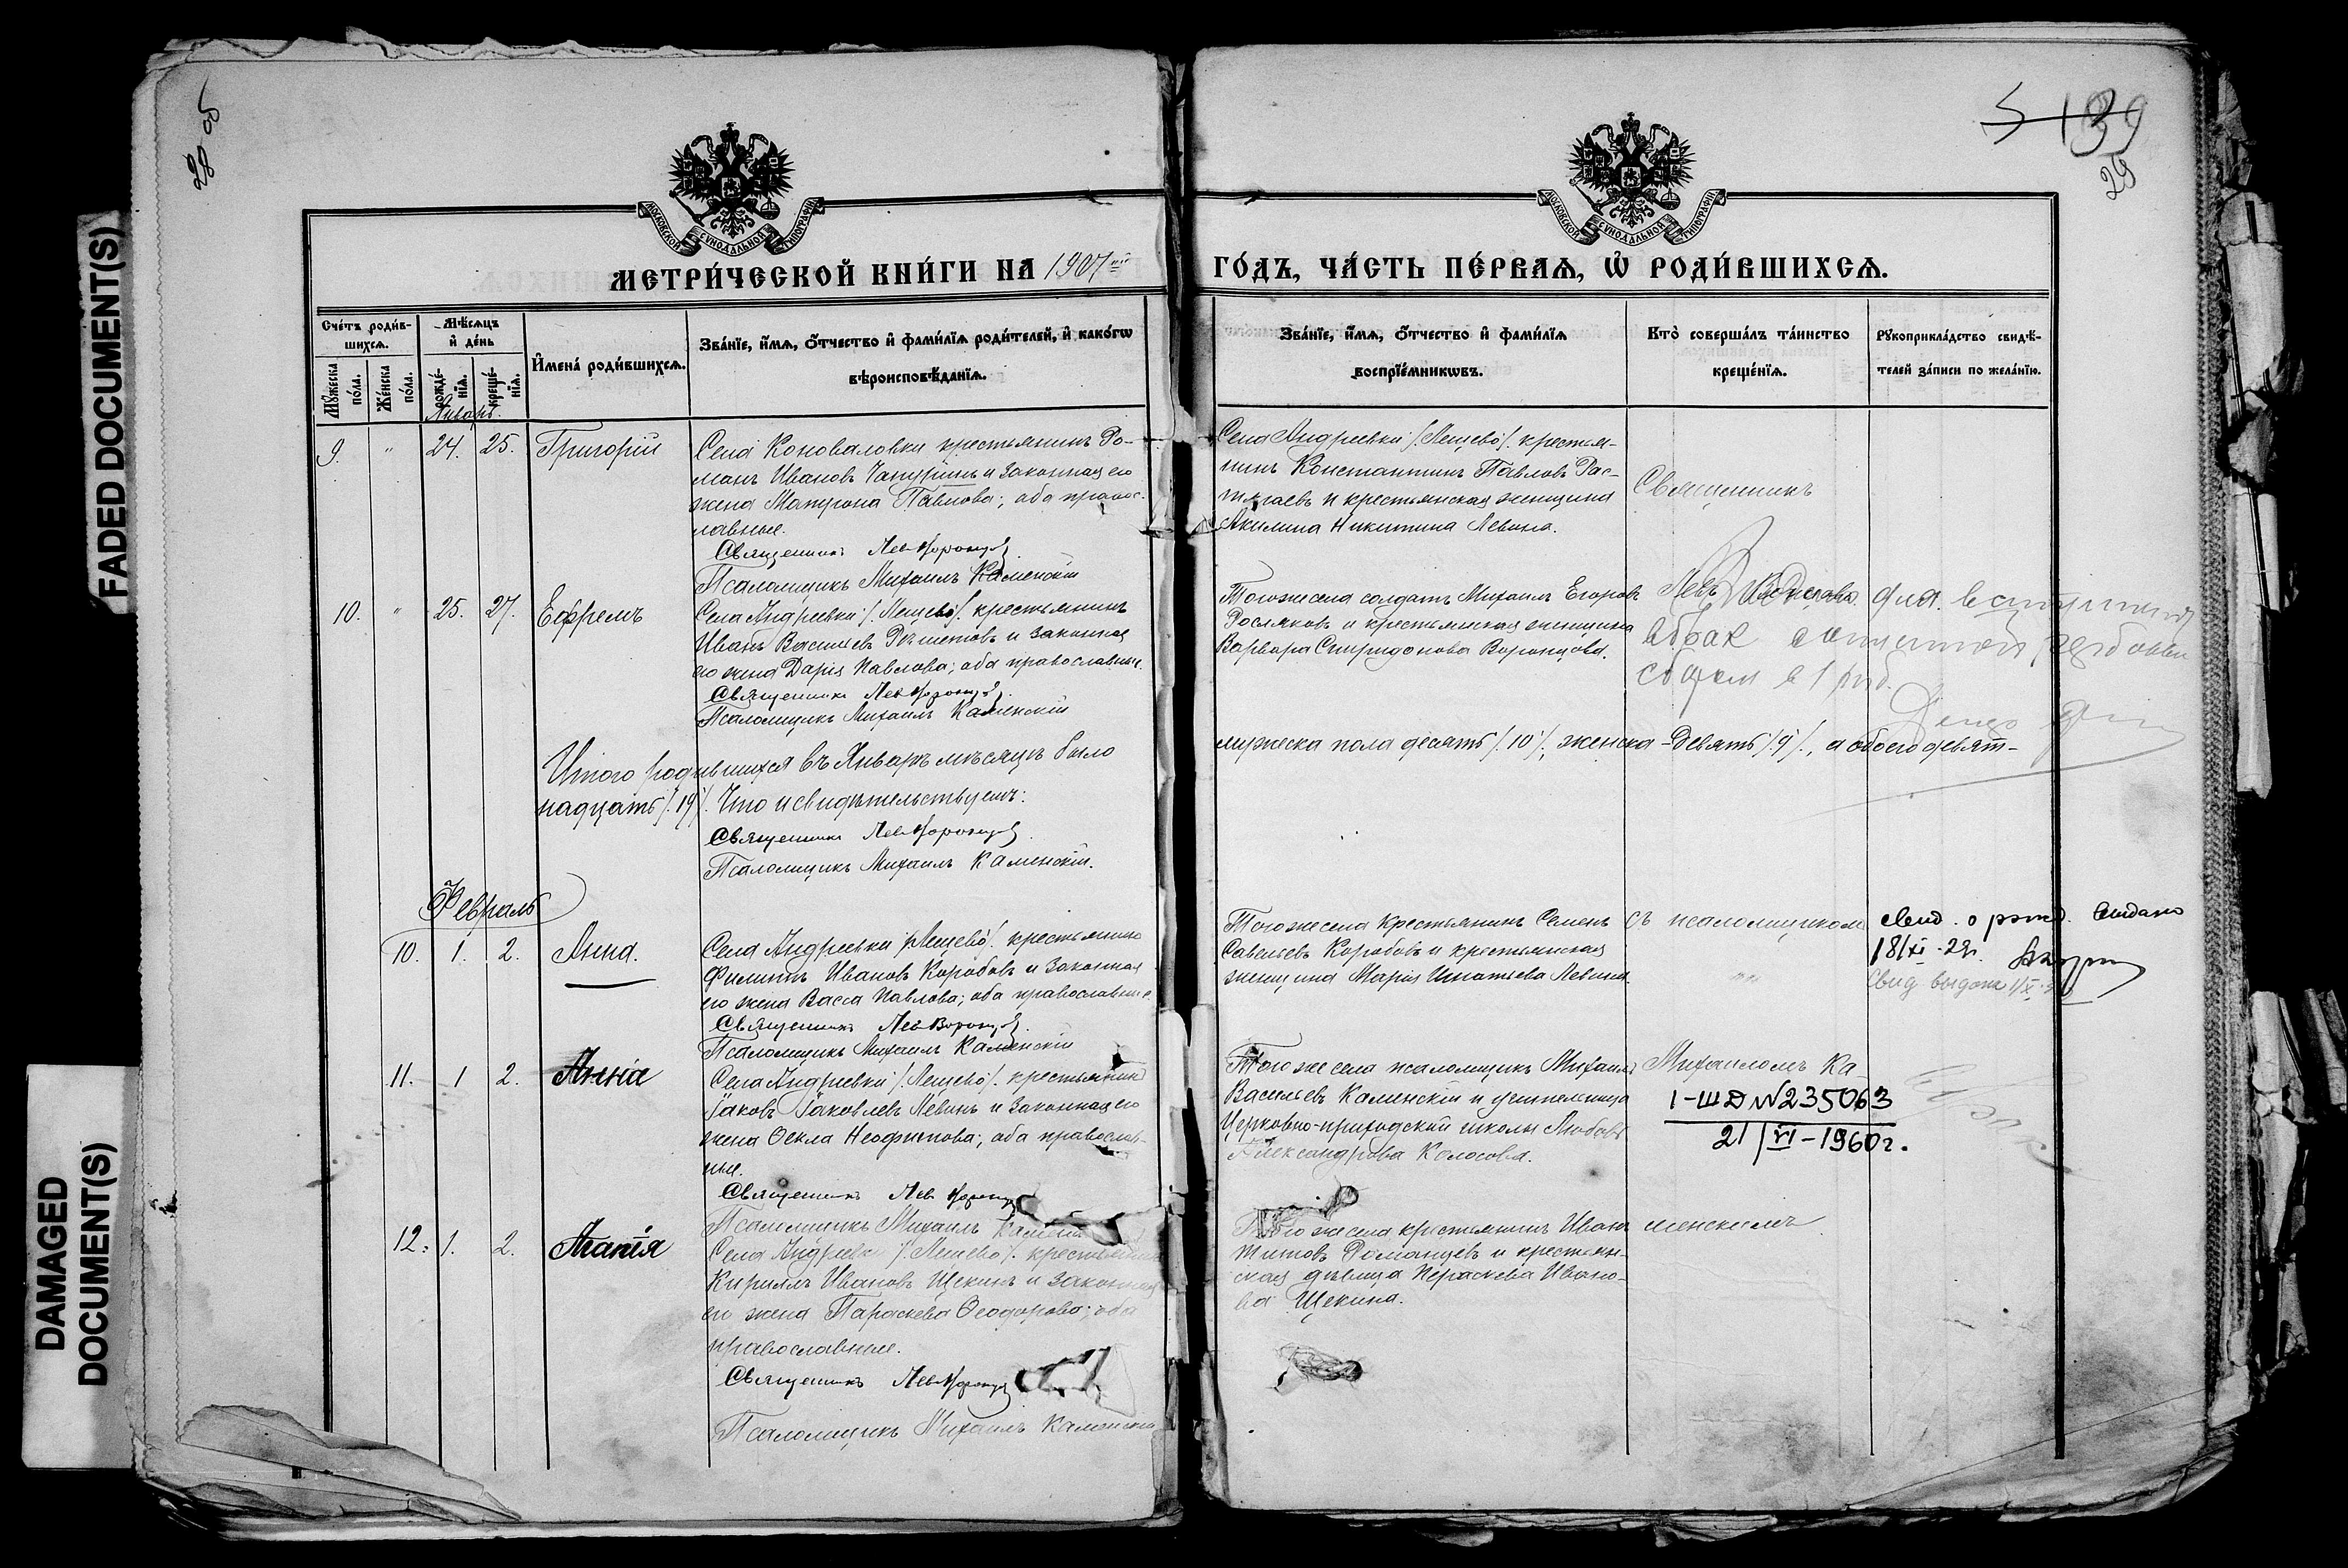 28 об
5 139
29
МОСКОВСКОЙ СѴНОДАЛЬНОЙ ТИПОГРАФІИ
МОСКОВСКОЙ СѴНОДАЛЬНОЙ ТИПОГРАФІИ
МЕТРИ́ЧЕСКОЙ КНИ́ГИ НА 1907ый ГО́ДЪ, ЧА́СТЬ ПЕ́РВАѦ, Ѡ҆ РОДИ́ВШИХСѦ.
Сче́тъ роди́в-
шихсѧ.
Мꙋ́жеска по́ла.
Же́нска по́ла.
Мѣ́сѧцъ
и҆ де́нь
рожде́-
нїѧ.
креще́-
нїѧ.
И҆мена̀ роди́вшихсѧ.
Зва́нїе, и҆́мѧ, ѻ҆́тчество и҆ фами́лїѧ роди́телей, и҆ како́гѡ
вѣроисповѣ́данїѧ.
Зва́нїе, и҆́мѧ, ѻ҆́тчество и҆ фами́лїѧ
воспрїе́мникѡвъ.
Кто̀ соверша́лъ та́инство
креще́нїѧ.
Рꙋкоприкла́дство свидѣ́-
телей за́писи по жела́нїю.
Январь
9. " 24. 25. Григорій
Села Коноваловки крестьянинъ Ро-
манъ Ивановъ Чапуринъ и законная его
жена Матрона Павлова; оба правос-
лавные.
Священникъ Лев Воронцов
Псаломщикъ Михаилъ Каменскій
Села Андреевки /. Лещево /. крестья-
нинъ Константинъ Павловъ Рас-
тягаевъ и крестьянская женщина
Акилина Никитина Левина.
Священникъ
10. " 25. 27. Ефремъ
Села Андреевки /. Лещево /. крестьянинъ
Иванъ Васильевъ Рѣшетовъ и законная
его жена Дарія Павлова; оба православные.
Священникъ Лев Воронцов
Псаломщикъ Михаилъ Каменскій
Того же села солдатъ Михаилъ Егоровъ
Росляковъ и крестьянская женщина
Варвара Спиридонова Воронцова.
Левъ
для вступления
в брак
Итого родившихся въ Январѣ мѣсяцѣ было
мужеска пола десять /. 10 /., женска – девять /. 9 /., а обоего девят-
надцать /. 19 /. Что и свидѣтельствуемъ:
Священникъ Лев Воронцов
Псаломщикъ Михаилъ Каменскій.
Февраль
10. 1. 2. Анна.
Села Андреевки /. Лещево /. крестьянинъ
Филиппъ Ивановъ Коробовъ и законная
его жена Васса Павлова; оба православные.
Священникъ Лев Воронцов
Псаломщикъ Михаилъ Каменскій
Того же села крестьянинъ Семенъ
Савельевъ Коробовъ и крестьянская
женщина Марія Игнатьева Левина.
съ псаломщикомъ
Свид. о рожд. выдано
18/XI-29г.
Свид выдан
11. 1 2. Анна
Села Андреевки /. Лещево /. крестьянинъ
Іаковъ Іаковлевъ Левинъ и законная его
жена Ѳекла Неофитова; оба православ-
ные.
Священникъ Лев Воронцов
Псаломщикъ Михаилъ Каменскій
Того же села псаломщикъ Михаилъ
Васильевъ Каменскій и учительница
Церковно-приходской школы Любовь
Александрова Колосова.
Михаиломъ Ка-
I-ШД №235063
21/VI-1960г.
12. 1. 2. Агапія
Села Андреевки /. Лещево /. крестьянинъ
Кириллъ Ивановъ Щекинъ и законная
его жена Параскева Ѳеодорова; оба
православные.
Священникъ Лев Воронцов
Псаломщикъ Михаилъ Каменскій
Того же села крестьянинъ Иванъ
Титовъ Романцевъ и крестьян-
ская дѣвица Параскева Ивано-
ва Щекина.
менскимъ
FADED DOCUMENT(S)
DAMAGED
DOCUMENT(S)